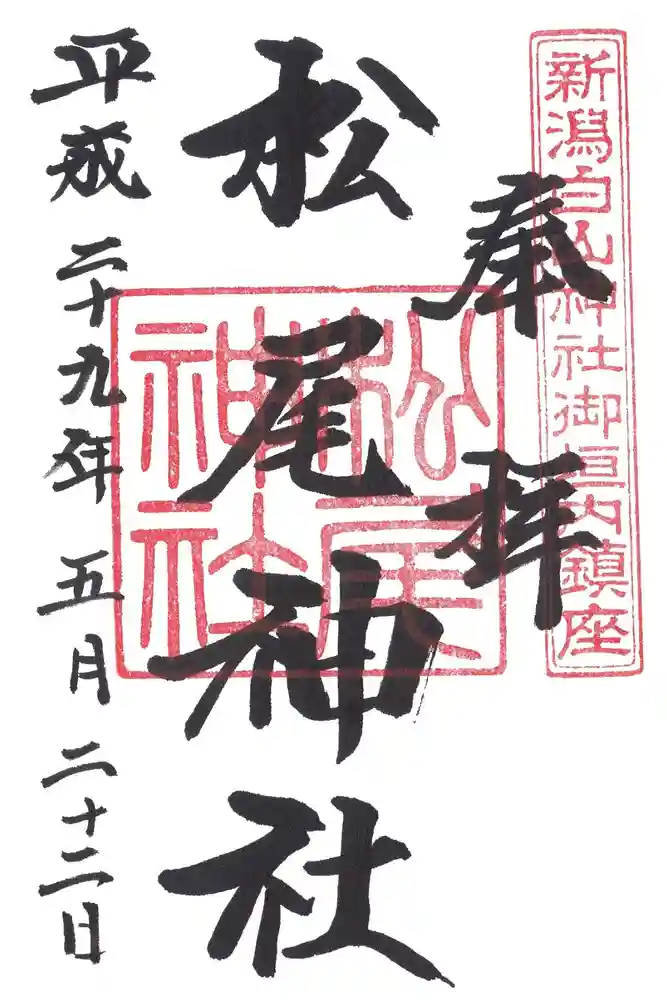 新潟白山神社御垣内鎮座
奉拝
松尾神社
松尾
神社
平成二十九年五月二十二日